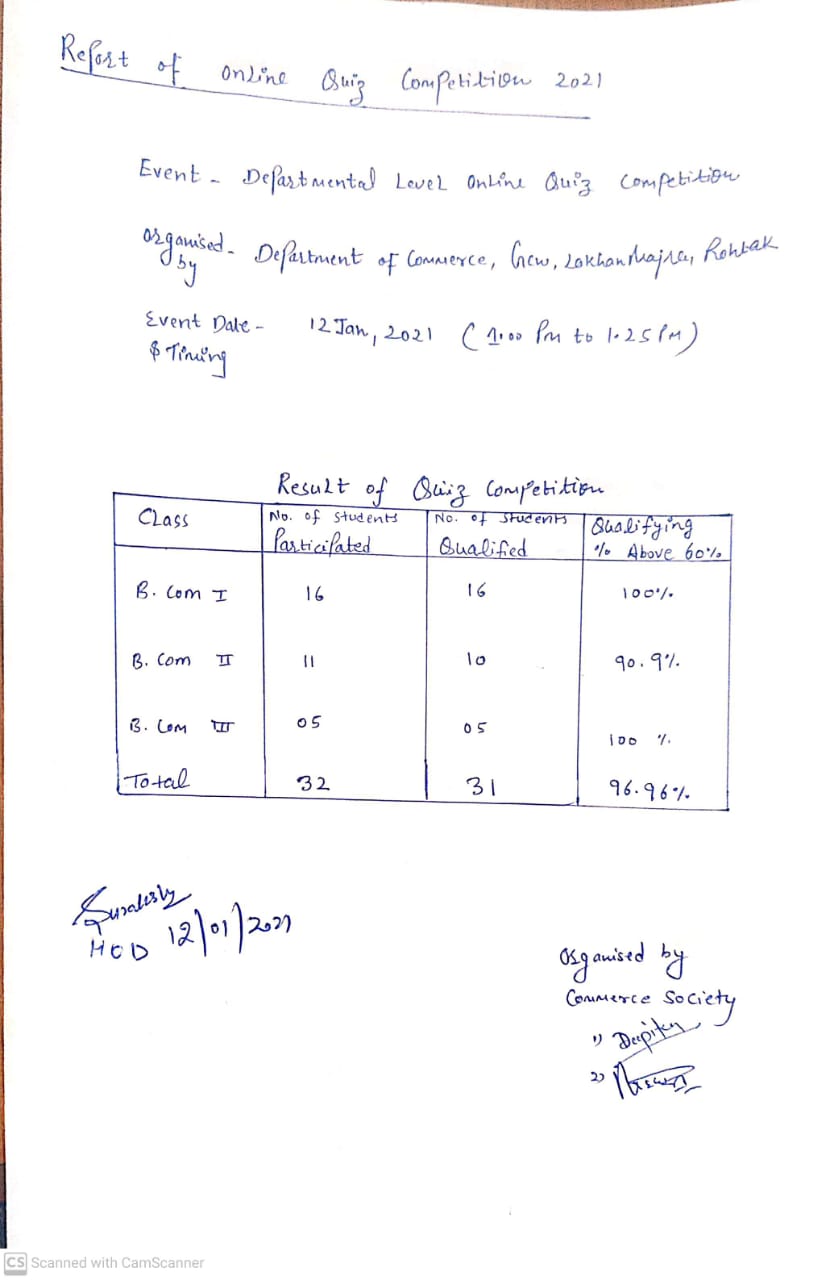 Report of Online Quiz Competition 2021
Event - Departmental Level Online Quiz Competition
Organised by - Department of Commerce, GCW, Lakhan Majra, Rohtak
Event Date & Timing - 12 Jan, 2021 (1.00 Pm to 1.25 PM)
Result of Quiz Competition
Class | No. of Students Participated | No. of Students Qualified | Qualifying % Above 60%
B. Com I 16 16 100%
B. Com II 11 10 90.9%
B. Com III 05 05 100 %
Total 32 31 96.96%
HOD 12/01/2021
Organised by
Commerce Society
1) Deepika
2)
CS Scanned with CamScanner